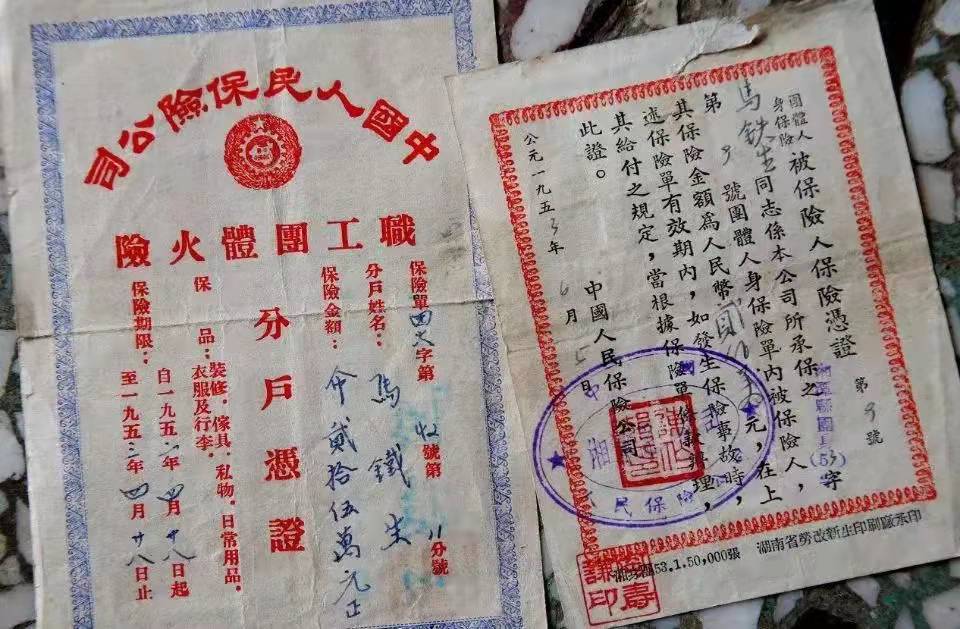 中國人民保險公司
職工團體火險
分戶憑證
保險單田火字第 號第11分號
分戶姓名：馬鐵生
保險金額：貳拾伍萬元正
保品：裝修，傢具，私物，日常用品，
衣服及行李。
保險期限：自一九五二年四月廿八日起
至一九五三年四月廿八日止
團體人身保險被保險人保險憑證
(53)字第9號
馬鉄生同志係本公司所承保之
第9號團體人身保險單內被保險人，
其保險金額爲人民幣 元，在上
述保險單有效期內，如發生保險事故時，
其給付之規定，當根據保險單 辦理，
此證。
中國人民保險公司
公元一九五3年6月5日
53.1.50,000張 湖南省勞改新生印刷廠承印